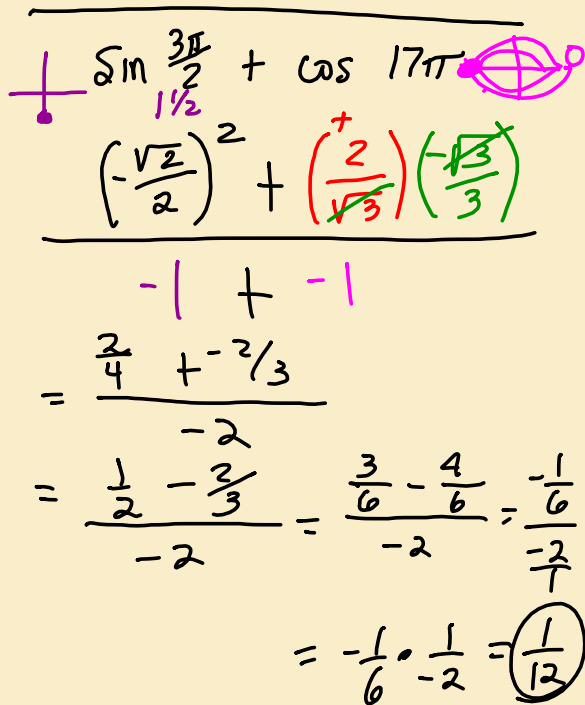 sin 3π/2 + cos 17π
1 1/2
(-√2/2)² + (+2/√3)(-√3/3)
-1 + -1
= (2/4 + -2/3)/-2
= (1/2 - 2/3)/-2 = (3/6 - 4/6)/-2 = (-1/6)/(-2/1)
= -1/6 · 1/-2 = 1/12